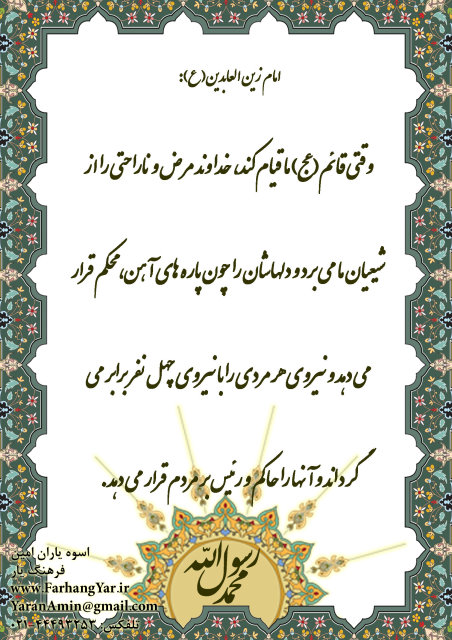 امام زین العابدین(ع):
وقتی قائم (عج) ما قیام کند، خداوند مرض و ناراحتی را از
شیعیان ما می برد و دلهاشان را چون پاره های آهن، محکم قرار
می دهد و نیروی هر مردی را با نیروی چهل نفر برابر می
گرداند و آنها را حاکم و رئیس بر مردم قرار می دهد.
محمد رسول الله
اسوه یاران امین
فرهنگ یار
www.FarhangYar.ir
YaranAmin@gmail.com
تلفکس: ۴۴۴۹۳۲۵۳-۰۲۱